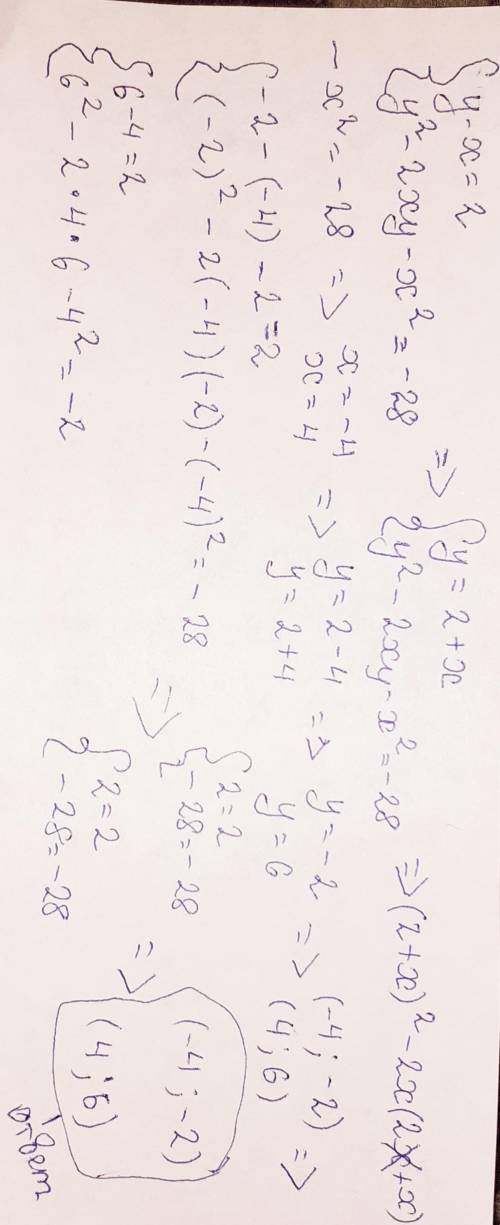 { y - x = 2
{ y² - 2xy - x² = -28 => { y = 2 + x
{ y² - 2xy - x² = -28 => (2+x)² - 2x(2+x)
- x² = -28 => x = -4 => y = 2 - 4 => y = -2 => (-4; -2) =>
x = 4 y = 2 + 4 y = 6 (4; 6)
{ -2 - (-4) - 2 = 2
{ (-2)² - 2(-4)(-2) - (-4)² = -28 => { 2 = 2
{ -28 = -28 => (-4; -2)
{ 6 - 4 = 2
{ 6² - 2·4·6 - 4² = -2 { 2 = 2
{ -28 = -28 (4; 6)
ответ